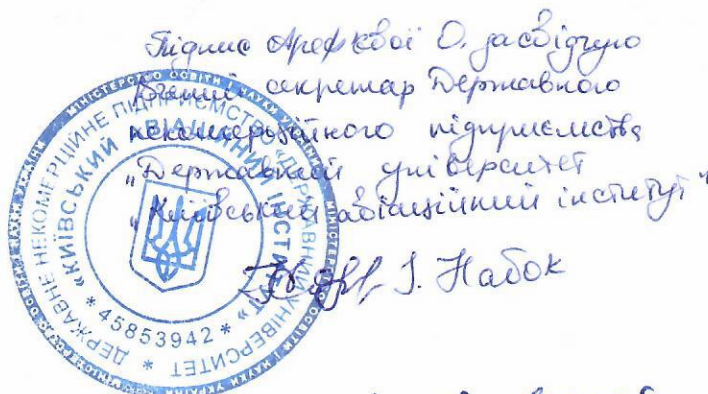 Підпис Ареф'євої О. засвідчую
Вчений секретар Державного
некомерційного підприємства
„Державний університет
„Київський авіаційний інститут"
І. Набок
МІНІСТЕРСТВО ОСВІТИ І НАУКИ УКРАЇНИ
ДЕРЖАВНЕ НЕКОМЕРЦІЙНЕ ПІДПРИЄМСТВО «ДЕРЖАВНИЙ УНІВЕРСИТЕТ
«КИЇВСЬКИЙ АВІАЦІЙНИЙ ІНСТИТУТ»
* 45853942 *